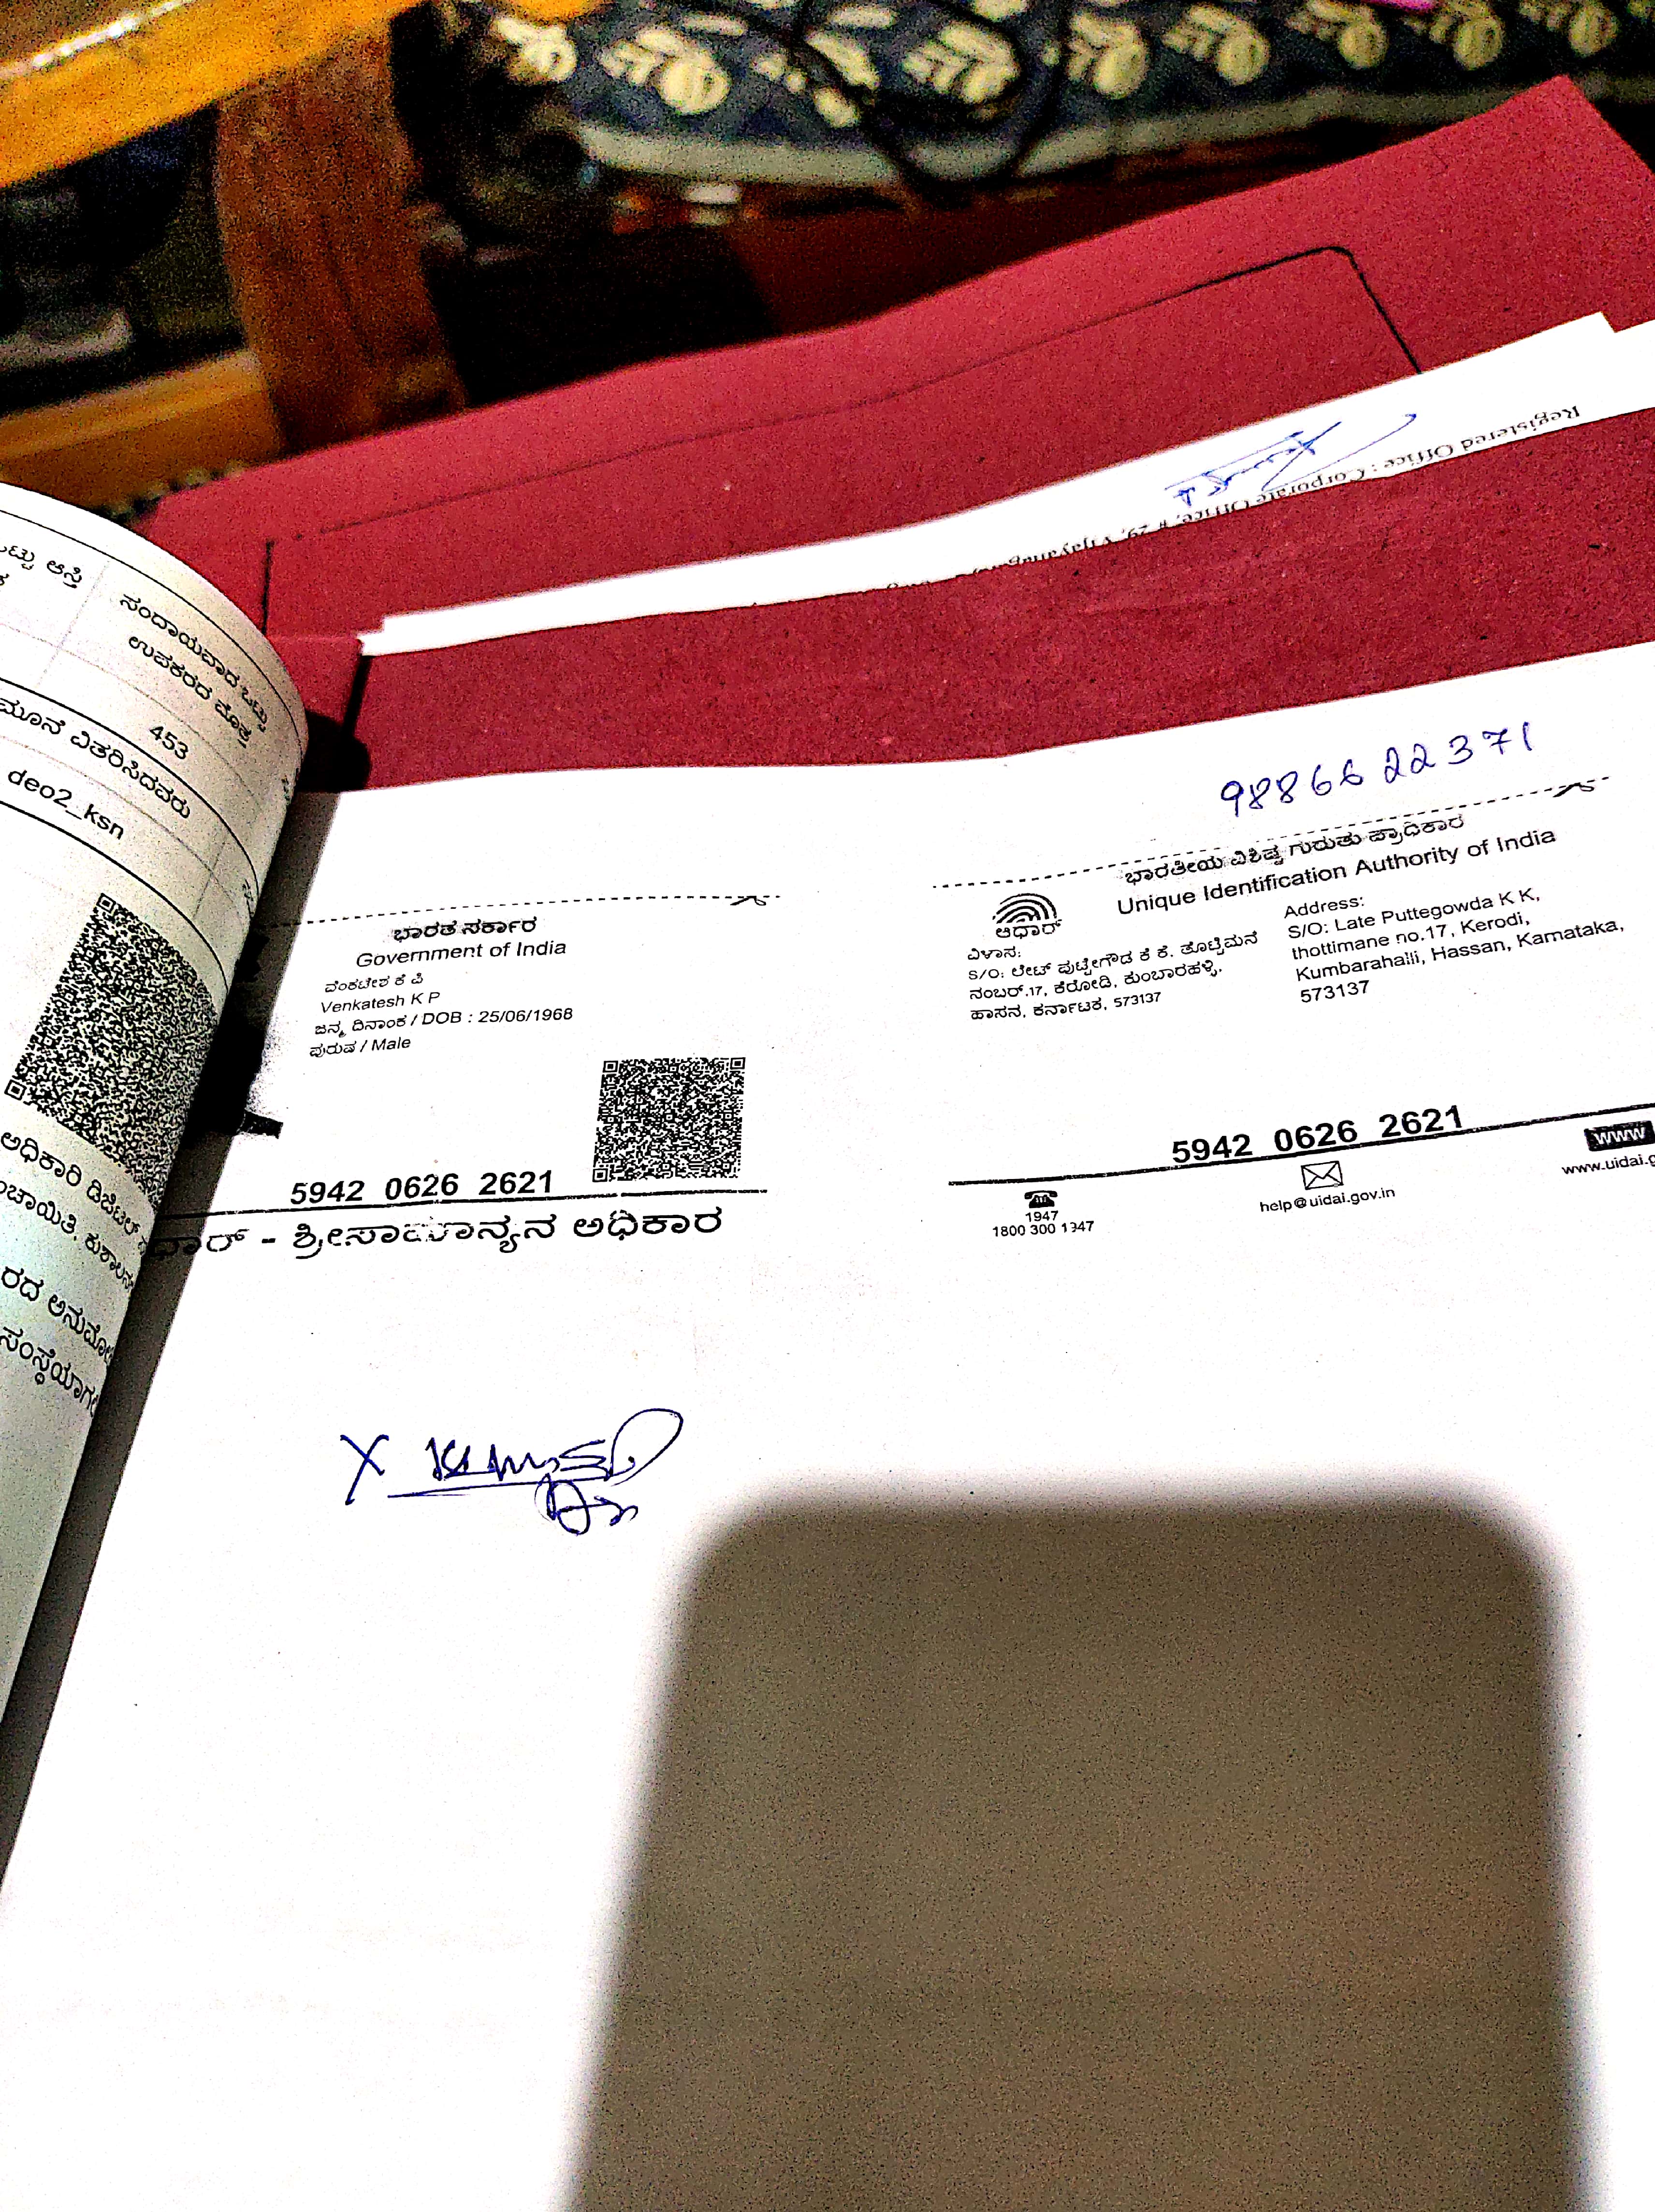 ಒಟ್ಟು ಆಸ್ತಿ
ಸಂದಾಯವಾದ ಒಟ್ಟು
ಉಪಕರದ ಮೊತ್ತ
453
ವಿತರಿಸಿದವರು
deo2_ksn
ಅಧಿಕಾರಿ ಡಿಜಿಟಲ್
Registered Office : Corporate Office, # 29, Vijayanag
9886622371
ಭಾರತ ಸರ್ಕಾರ
Government of India
ವೆಂಕಟೇಶ ಕೆ ಪಿ
Venkatesh K P
ಜನ್ಮ ದಿನಾಂಕ / DOB : 25/06/1968
ಪುರುಷ / Male
5942 0626 2621
ಧಾರ್ - ಶ್ರೀಸಾಮಾನ್ಯನ ಅಧಿಕಾರ
ಭಾರತೀಯ ವಿಶಿಷ್ಟ ಗುರುತು ಪ್ರಾಧಿಕಾರ
Unique Identification Authority of India
ಆಧಾರ್
ವಿಳಾಸ:
S/O: ಲೇಟ್ ಪುಟ್ಟೇಗೌಡ ಕೆ ಕೆ, ತೊಟ್ಟಿಮನೆ
ನಂಬರ್.17, ಕೆರೋಡಿ, ಕುಂಬಾರಹಳ್ಳಿ,
ಹಾಸನ, ಕರ್ನಾಟಕ, 573137
Address:
S/O: Late Puttegowda K K,
thottimane no.17, Kerodi,
Kumbarahalli, Hassan, Karnataka,
573137
5942 0626 2621
1947
1800 300 1947
help@uidai.gov.in
WWW
www.uidai.g
X